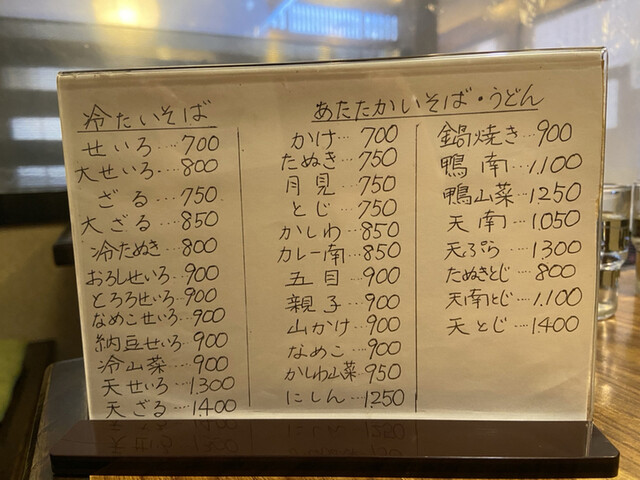 冷たいそば
せいろ…700
大せいろ…800
ざる…750
大ざる…850
冷たぬき…800
おろしせいろ…900
とろろせいろ…900
なめこせいろ…900
納豆せいろ…900
冷山菜…900
天せいろ…1.300
天ざる…1.400
あたたかいそば・うどん
かけ…700
たぬき…750
月見…750
とじ…750
かしわ…850
カレー南…850
五目…900
親子…900
山かけ…900
なめこ…900
かしわ山菜…950
にしん…1250
鍋焼き…900
鴨南…1.100
鴨山菜…1250
天南…1.050
天ぷら…1300
たぬきとじ…800
天南とじ…1.100
天とじ…1400